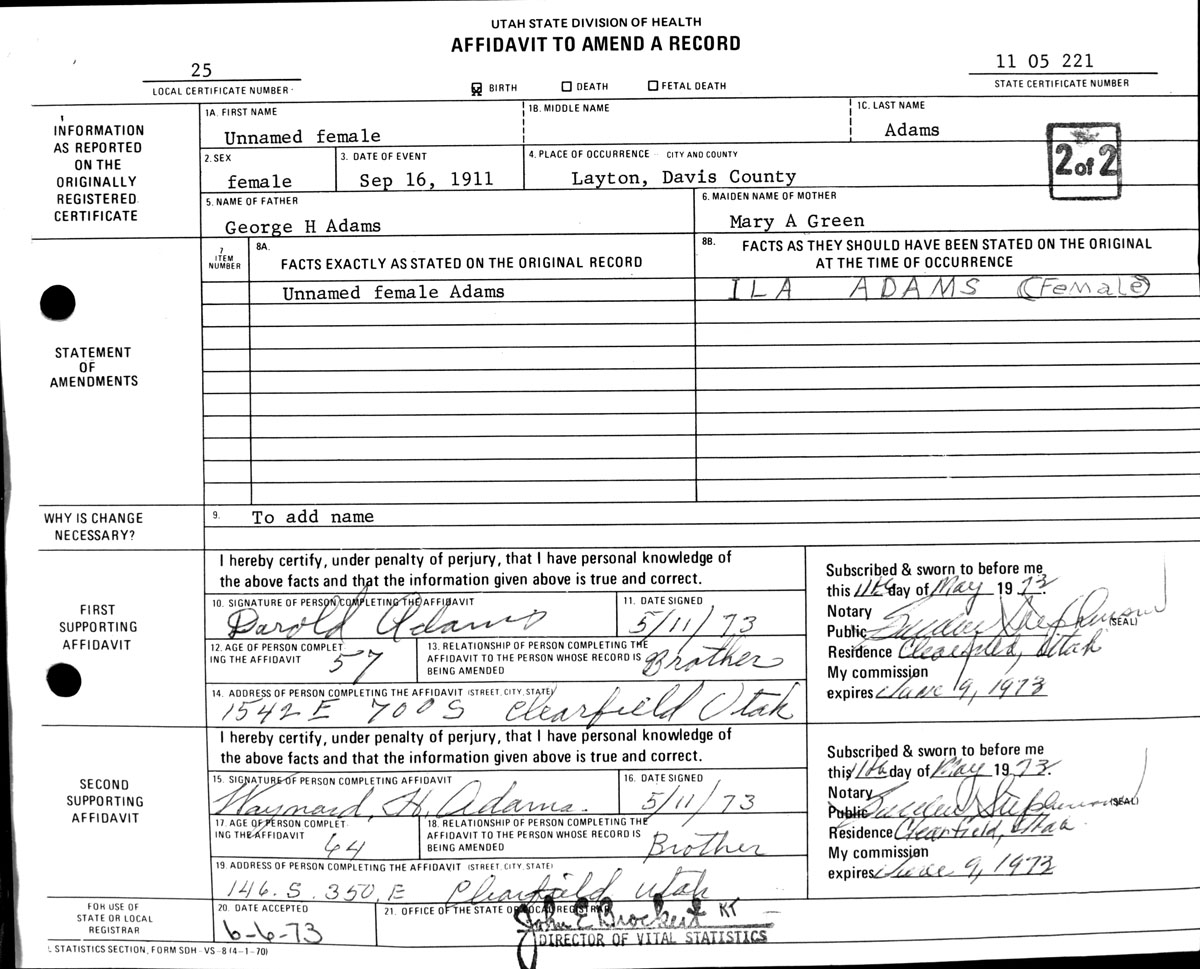 UTAH STATE DIVISION OF HEALTH
AFFIDAVIT TO AMEND A RECORD
25
LOCAL CERTIFICATE NUMBER
11 05 221
STATE CERTIFICATE NUMBER
BIRTH DEATH FETAL DEATH
INFORMATION
AS REPORTED
ON THE
ORIGINALLY
REGISTERED
CERTIFICATE
1A. FIRST NAME
Unnamed female
1B. MIDDLE NAME
1C. LAST NAME
Adams
2 of 2
2. SEX
female
3. DATE OF EVENT
Sep 16, 1911
4. PLACE OF OCCURRENCE – CITY AND COUNTY
Layton, Davis County
5. NAME OF FATHER
George H Adams
6. MAIDEN NAME OF MOTHER
Mary A Green
STATEMENT
OF
AMENDMENTS
7.
ITEM
NUMBER
8A.
FACTS EXACTLY AS STATED ON THE ORIGINAL RECORD
8B. FACTS AS THEY SHOULD HAVE BEEN STATED ON THE ORIGINAL
AT THE TIME OF OCCURRENCE
Unnamed female Adams
ILA ADAMS (Female)
WHY IS CHANGE
NECESSARY?
9. To add name
FIRST
SUPPORTING
AFFIDAVIT
I hereby certify, under penalty of perjury, that I have personal knowledge of
the above facts and that the information given above is true and correct.
10. SIGNATURE OF PERSON COMPLETING THE AFFIDAVIT
Darold Adams
11. DATE SIGNED
5/11/73
12. AGE OF PERSON COMPLET
ING THE AFFIDAVIT 57
13. RELATIONSHIP OF PERSON COMPLETING THE
AFFIDAVIT TO THE PERSON WHOSE RECORD IS
BEING AMENDED
Brother
14. ADDRESS OF PERSON COMPLETING THE AFFIDAVIT (STREET, CITY, STATE)
1542 E 700 S Clearfield Utah
Subscribed & sworn to before me
this 11th day of May 1973.
Notary
Public Stephenson (SEAL)
Residence Clearfield, Utah
My commission
expires June 9, 1973
SECOND
SUPPORTING
AFFIDAVIT
I hereby certify, under penalty of perjury, that I have personal knowledge of
the above facts and that the information given above is true and correct.
15. SIGNATURE OF PERSON COMPLETING AFFIDAVIT
Waynard H. Adams.
16. DATE SIGNED
5/11/73
17. AGE OF PERSON COMPLET
ING THE AFFIDAVIT 64
18. RELATIONSHIP OF PERSON COMPLETING THE
AFFIDAVIT TO THE PERSON WHOSE RECORD IS
BEING AMENDED
Brother
19. ADDRESS OF PERSON COMPLETING THE AFFIDAVIT (STREET, CITY, STATE)
146. S. 350. E Clearfield Utah
Subscribed & sworn to before me
this 11th day of May 1973.
Notary
Public Stephenson (SEAL)
Residence Clearfield, Utah
My commission
expires June 9, 1973
FOR USE OF
STATE OR LOCAL
REGISTRAR
20. DATE ACCEPTED
6-6-73
21. OFFICE OF THE STATE OR LOCAL REGISTRAR
John E Brockert KT
DIRECTOR OF VITAL STATISTICS
STATISTICS SECTION, FORM SDH - VS - 8 (4-1-70)